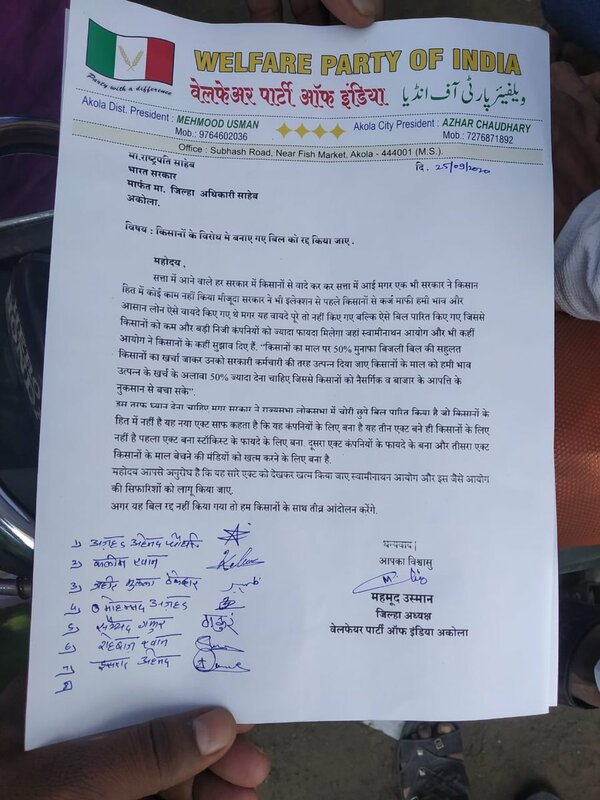 WELFARE PARTY OF INDIA
Party with a difference
वेलफेअर पार्टी ऑफ इंडिया ویلفیئر پارٹی آف انڈیا
Akola Dist. President : MEHMOOD USMAN
Mob.: 9764602036
Akola City President : AZHAR CHAUDHARY
Mob.: 7276871892
Office : Subhash Road, Near Fish Market, Akola - 444001 (M.S.).
मा.राष्ट्रपति साहेब
दि. 25/09/2020
भारत सरकार
मार्फत मा. जिल्हा अधिकारी साहेब
अकोला.
विषय : किसानों के विरोध मे बनाए गए बिल को रद्द किया जाए .
महोदय ,
सत्ता में आने वाले हर सरकार में किसानों से वादे कर कर सत्ता में आई मगर एक भी सरकार ने किसान
हित में कोई काम नहीं किया मौजूदा सरकार ने भी इलेक्शन से पहले किसानों से कर्ज माफी हमी भाव और
आसान लोन ऐसे वायदे किए गए थे मगर यह वायदे पूरे तो नहीं किए गए बल्कि ऐसे बिल पारित किए गए जिससे
किसानों को कम और बड़ी निजी कंपनियों को ज्यादा फायदा मिलेगा जहां स्वामीनाथन आयोग और भी कहीं
आयोग ने किसानों के कहीं सुझाव दिए हैं. “किसानों का माल पर 50% मुनाफा बिजली बिल की सहुलत
किसानों का खर्चा जाकर उनको सरकारी कर्मचारी की तरह उत्पन्न दिया जाए किसानों के माल को हमी भाव
उत्पन्न के खर्च के अलावा 50% ज्यादा देना चाहिए जिससे किसानों को नैसर्गिक व बाजार के आपत्ति के
नुकसान से बचा सके”.
इस तरफ ध्यान देना चाहिए मगर सरकार ने राज्यसभा लोकसभा में चोरी छुपे बिल पारित किया है जो किसानों के
हित में नहीं है यह नया एक्ट साफ कहता है कि यह कंपनियों के लिए बना है यह तीन एक्ट बने ही किसानों के लिए
नहीं है पहला एक्ट बना स्टॉकिस्ट के फायदे के लिए बना. दूसरा एक्ट कंपनियों के फायदे के बना और तीसरा एक्ट
किसानों के माल बेचने की मंडियों को खत्म करने के लिए बना है.
महोदय आपसे अनुरोध है कि यह सारे एक्ट को देखकर खत्म किया जाए स्वामीनाथन आयोग और इस जैसे आयोग
की सिफारिशों को लागू किया जाए.
अगर यह बिल रद्द नहीं किया गया तो हम किसानों के साथ तीव्र आंदोलन करेंगे.
धन्यवाद।
आपका विश्वासु
महमूद उस्मान
जिल्हा अध्यक्ष
वेलफेयर पार्टी ऑफ इंडिया अकोला
1) अज़हर अहेमद
2) कलीम खान
3)
4) मोहम्मद अज़हर
5) सय्यद ठाकुर
6) खान
7) अहेमद
8